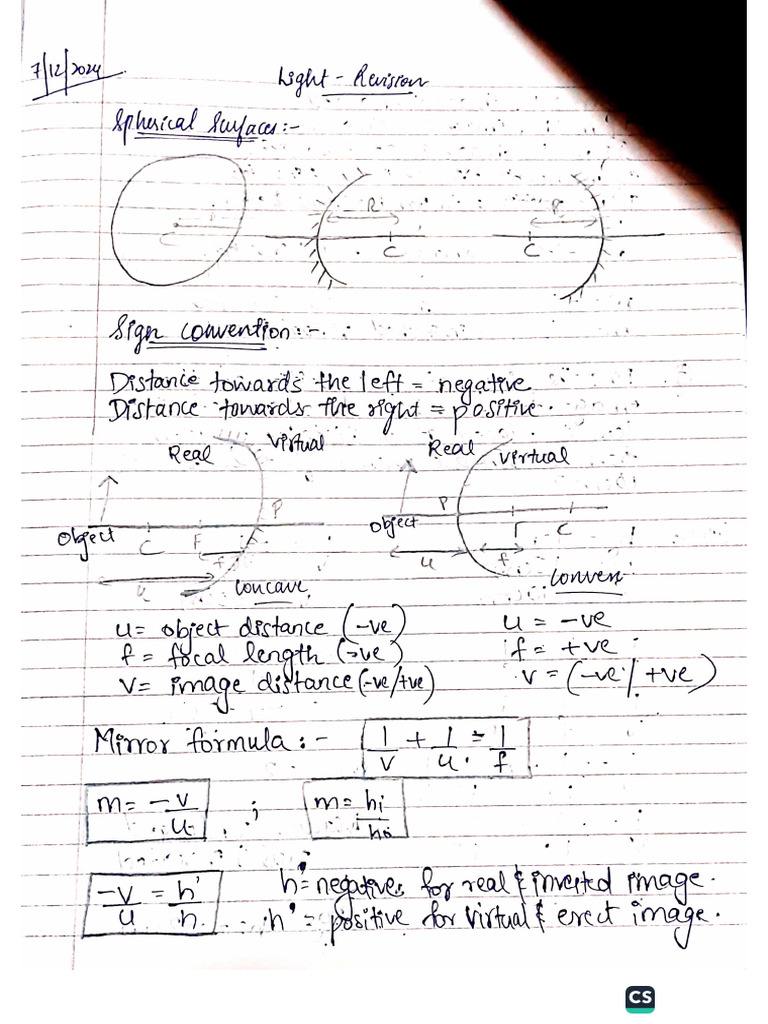 7/12/2024
Light - Revision
Spherical Surfaces:-
C
R
C
R
C
Sign convention:-
Distance towards the left = negative
Distance towards the right = positive.
Real Virtual Real Virtual
P P
Object C F Object F C
f u f
u
Concave Convex
u = object distance (-ve) u = -ve
f = focal length (-ve) f = +ve
v = image distance (-ve/+ve) v = (-ve/+ve)
Mirror formula :- 1/v + 1/u = 1/f
m = -v/u ; m = hi/ho
-v/u = h'/h h' = negative for real & inverted image.
h' = positive for virtual & erect image.
CS